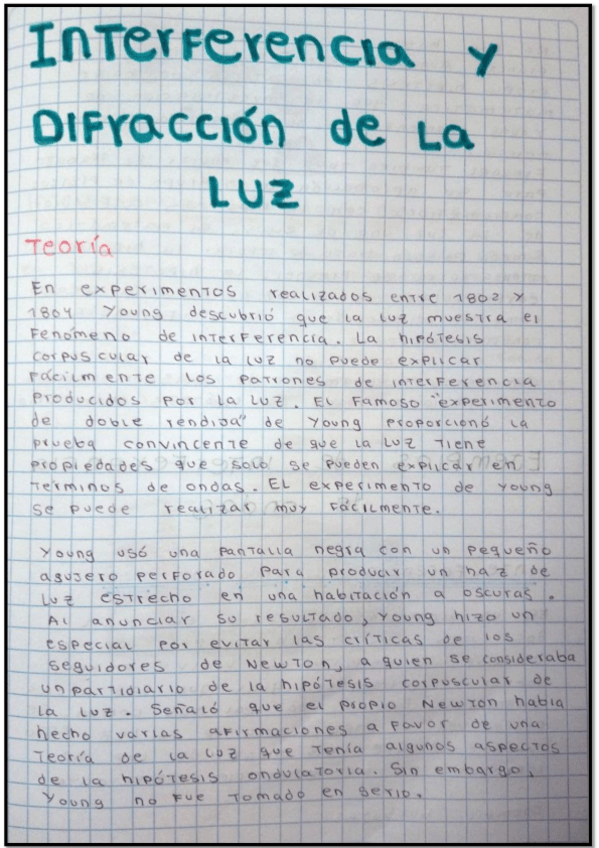 Interferencia y
Difracción de la
Luz
Teoría
En experimentos realizados entre 1802 y
1804 Young descubrió que la luz muestra el
fenómeno de interferencia. La hipótesis
corpuscular de la luz no puede explicar
fácilmente los patrones de interferencia
producidos por la luz. El famoso "experimento
de doble rendija" de Young proporcionó la
prueba convincente de que la luz tiene
propiedades que solo se pueden explicar en
terminos de ondas. El experimento de Young
se puede realizar muy fácilmente.
Young usó una pantalla negra con un pequeño
agujero perforado para producir un haz de
luz estrecho "en una habitación a oscuras".
Al anunciar su resultado, Young hizo un
especial por evitar las críticas de los
seguidores de Newton, a quien se consideraba
un partidiario de la hipótesis corpuscular de
la luz. Señaló que el propio Newton había
hecho varias afirmaciones a favor de una
teoría de la luz que tenía algunos aspectos
de la hipótesis ondulatoria. Sin embargo,
Young no fue tomado en serio.